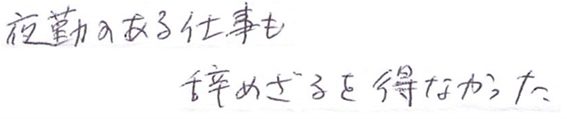 夜勤のある仕事も
辞めざるを得なかった